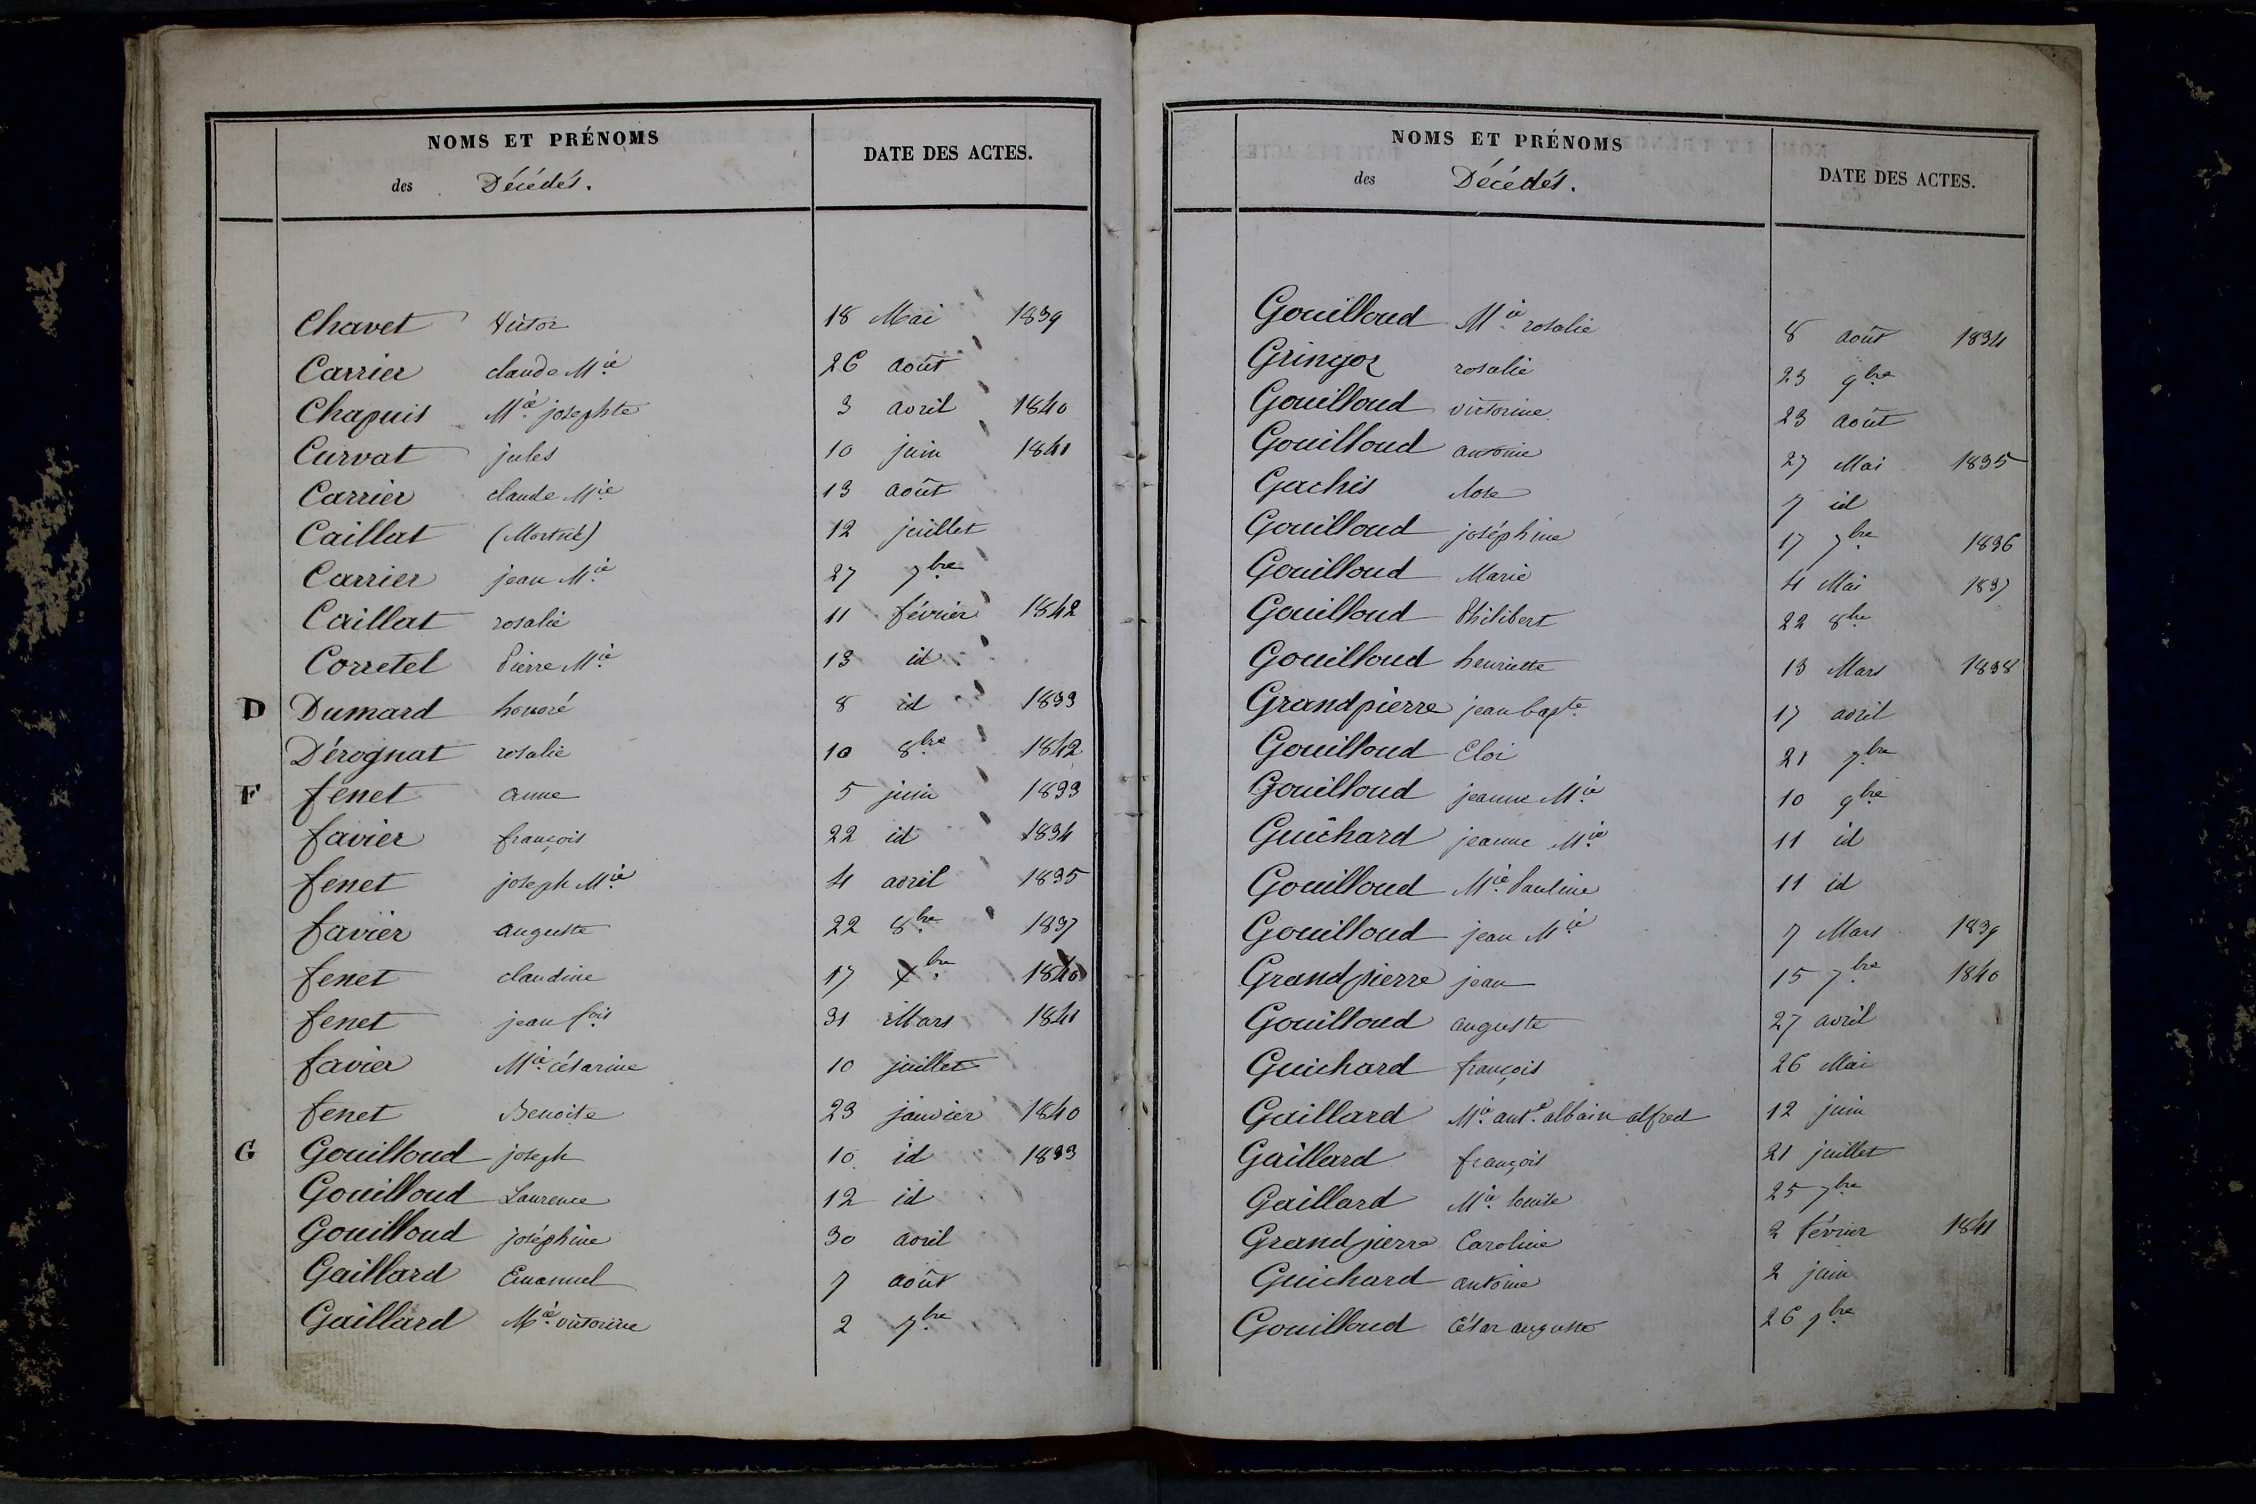 NOMS ET PRÉNOMS
des Décédés.
DATE DES ACTES.
Chavet Victor 18 Mai 1839
Carrier claude Mie 26 août
Chapuis Mie josephte 3 avril 1840
Curvat jules 10 juin 1841
Carrier claude Mie 13 août
Caillat (Mortné) 12 juillet
Carrier jean Mie 27 7bre
Caillat rosalie 11 février 1842
Corretel Pierre Mie 13 id
D Dumard honoré 8 id 1833
Dérognat rosalie 10 8bre 1842
F fenet anne 5 juin 1833
favier françois 22 id 1834
fenet joseph Mie 4 avril 1835
favier auguste 22 8bre 1837
fenet claudine 17 Xbre 1840
fenet jean fois 31 Mars 1841
favier Mie césarine 10 juillet
fenet Benoite 23 janvier 1840
G Gouilloud joseph 10 id 1833
Gouilloud Laurence 12 id
Gouilloud joséphine 30 avril
Gaillard Emanuel 7 août
Gaillard Mie victorine 2 7bre
NOMS ET PRÉNOMS
des Décédés.
DATE DES ACTES.
Gouilloud Mie rosalie 8 août 1834
Gringoz rosalie 23 9bre
Gouilloud victorine 23 août
Gouilloud antoine 27 Mai 1835
Gachis Rose 7 id
Gouilloud joséphine 17 7bre 1836
Gouilloud Marie 4 Mai 1837
Gouilloud Philibert 22 8bre
Gouilloud henriette 13 Mars 1838
Grandpierre jean bapte 17 avril
Gouilloud Eloi 21 7bre
Gouilloud jeanne Mie 10 9bre
Guichard jeanne Mie 11 id
Gouilloud Mie Pauline 11 id
Gouilloud jean Mie 7 Mars 1839
Grandpierre jean 15 7bre 1840
Gouilloud auguste 27 avril
Guichard françois 26 Mai
Gaillard Mie ant. albain alfred 12 juin
Gaillard françois 21 juillet
Gaillard Mie louise 25 7bre
Grandpierre Caroline 2 février 1841
Guichard antoine 2 juin
Gouilloud César auguste 26 9bre